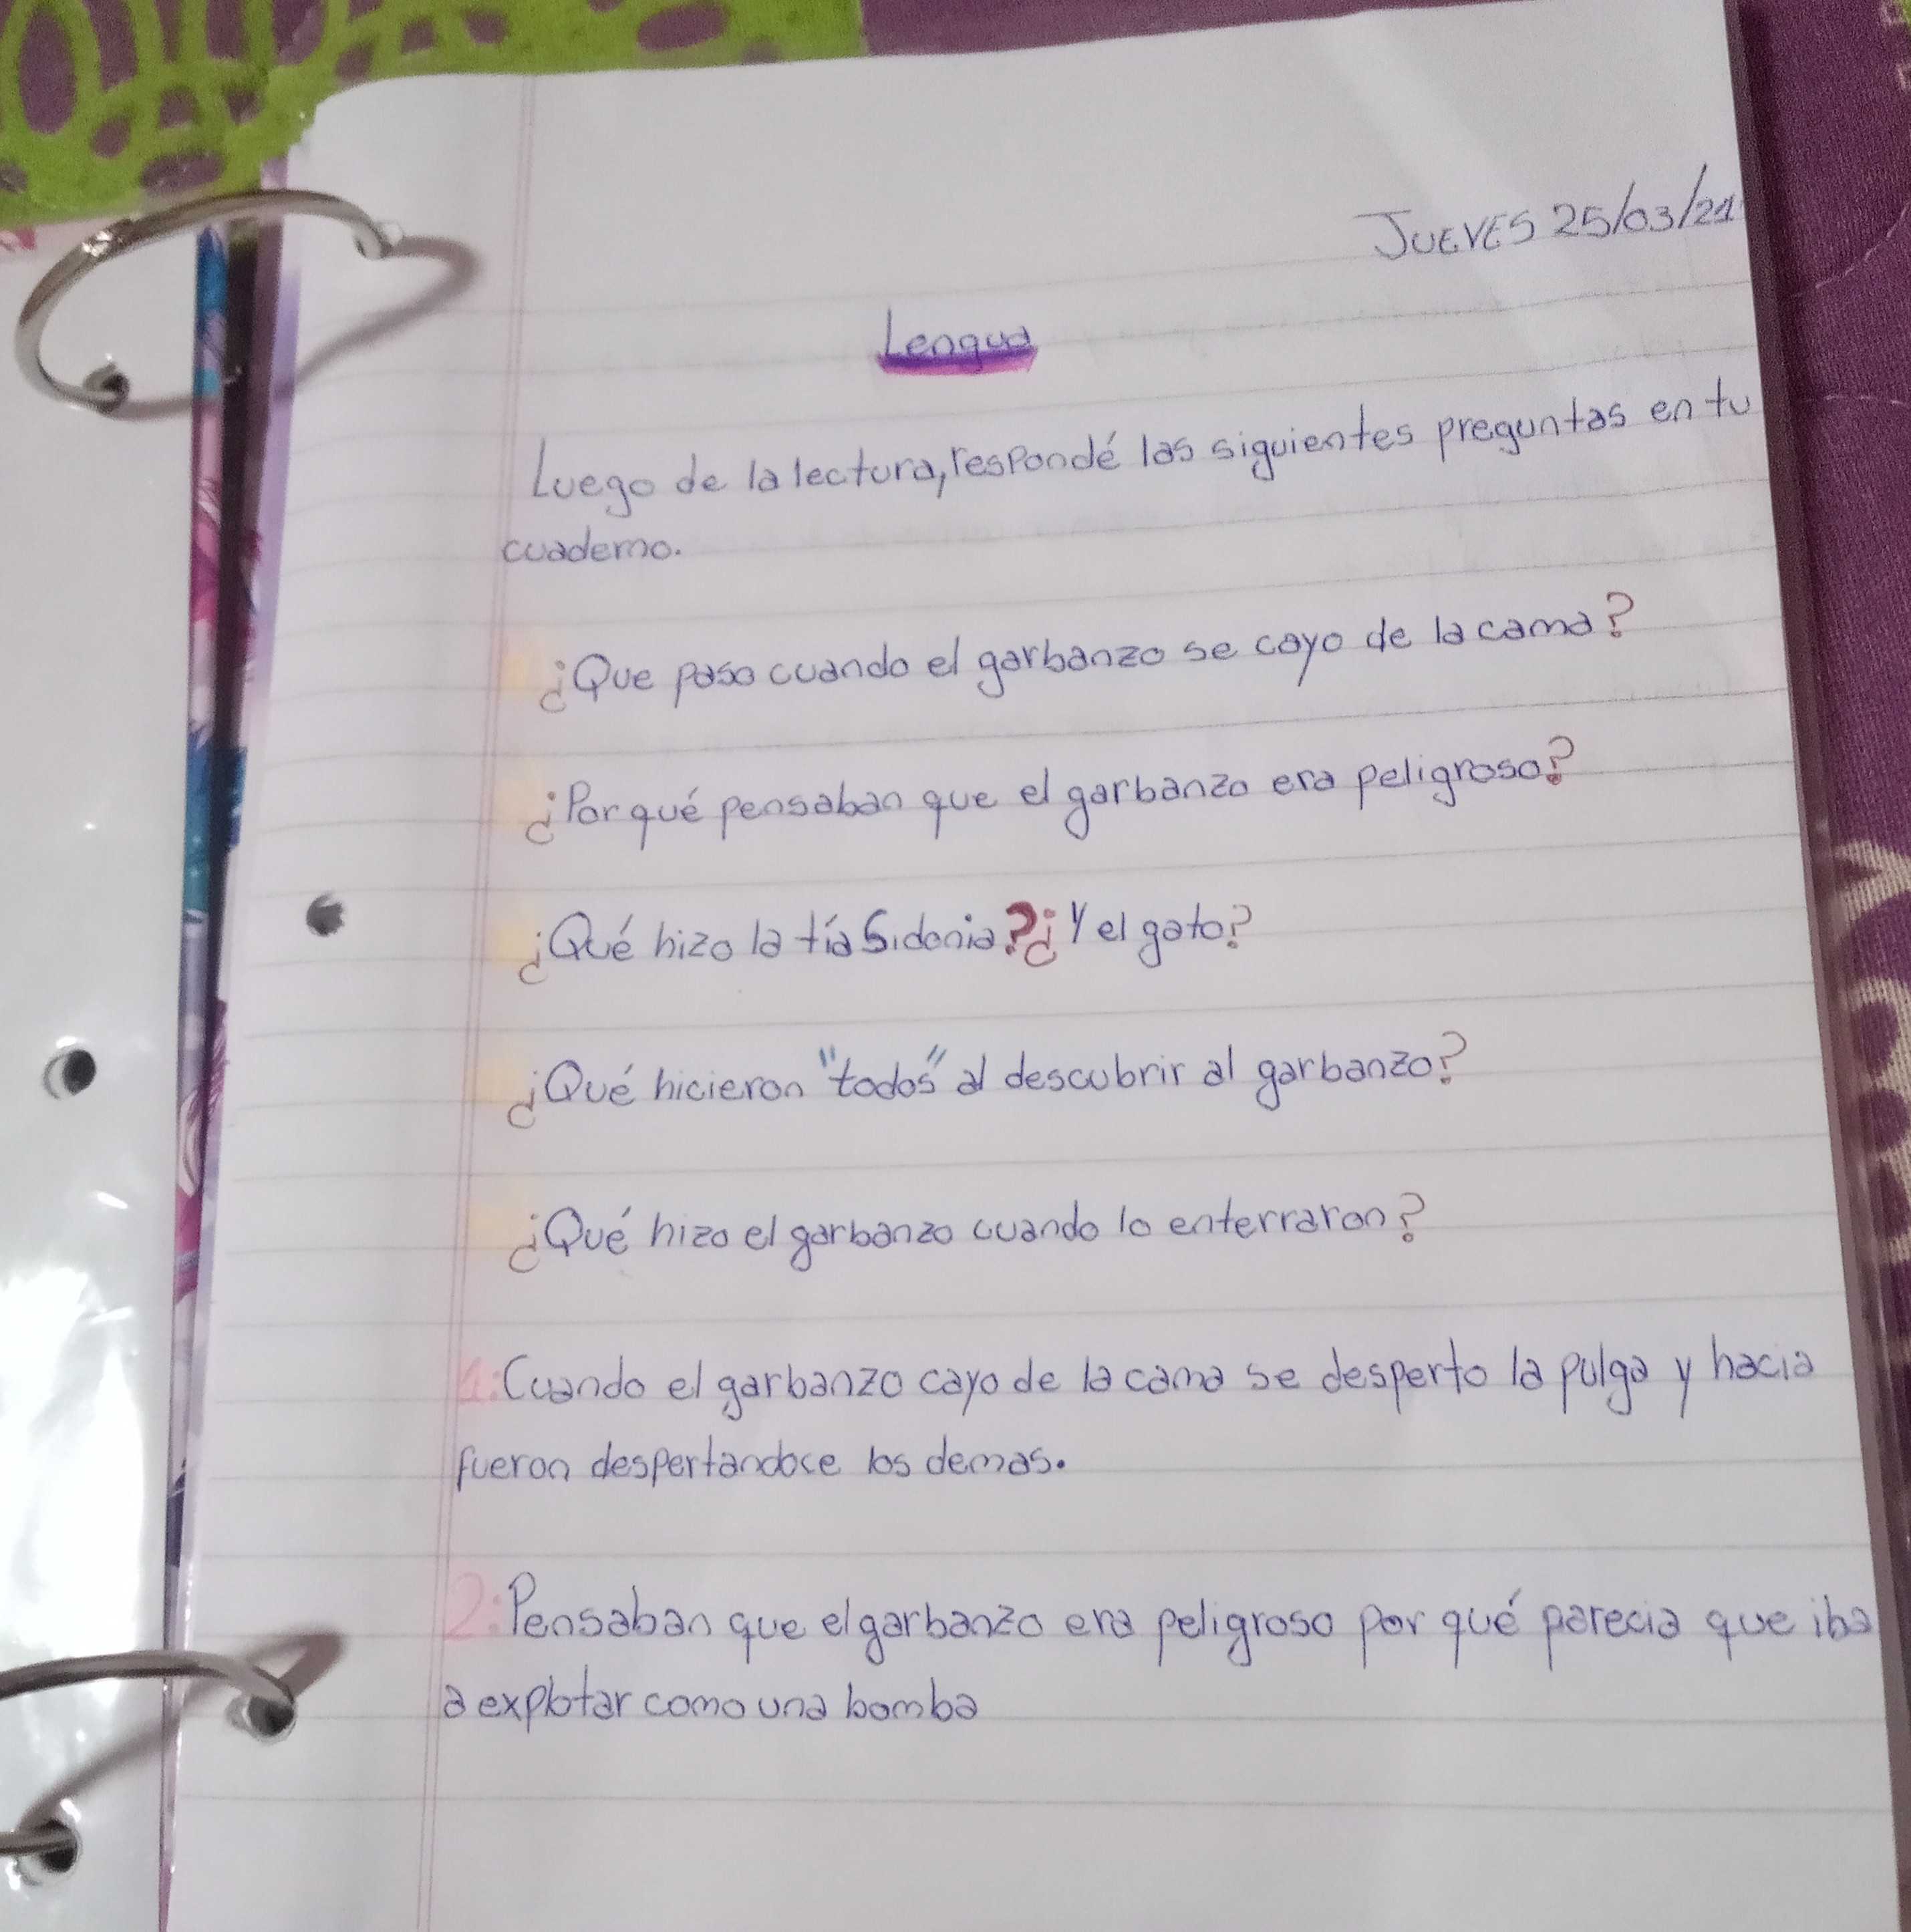 JUEVES 25/03/21
Lengua
Luego de la lectura, respondé las siguientes preguntas en tu
cuaderno.
¿Que paso cuando el garbanzo se cayo de la cama?
¿Por qué pensaban que el garbanzo era peligroso?
¿Qué hizo la tía Sidonia? ¿Y el gato?
¿Qué hicieron "todos" al descubrir al garbanzo?
¿Qué hizo el garbanzo cuando lo enterraron?
1: Cuando el garbanzo cayo de la cama se desperto la pulga y hacia
fueron despertandoce los demas.
2: Pensaban que el garbanzo era peligroso por qué parecia que iba
a explotar como una bomba